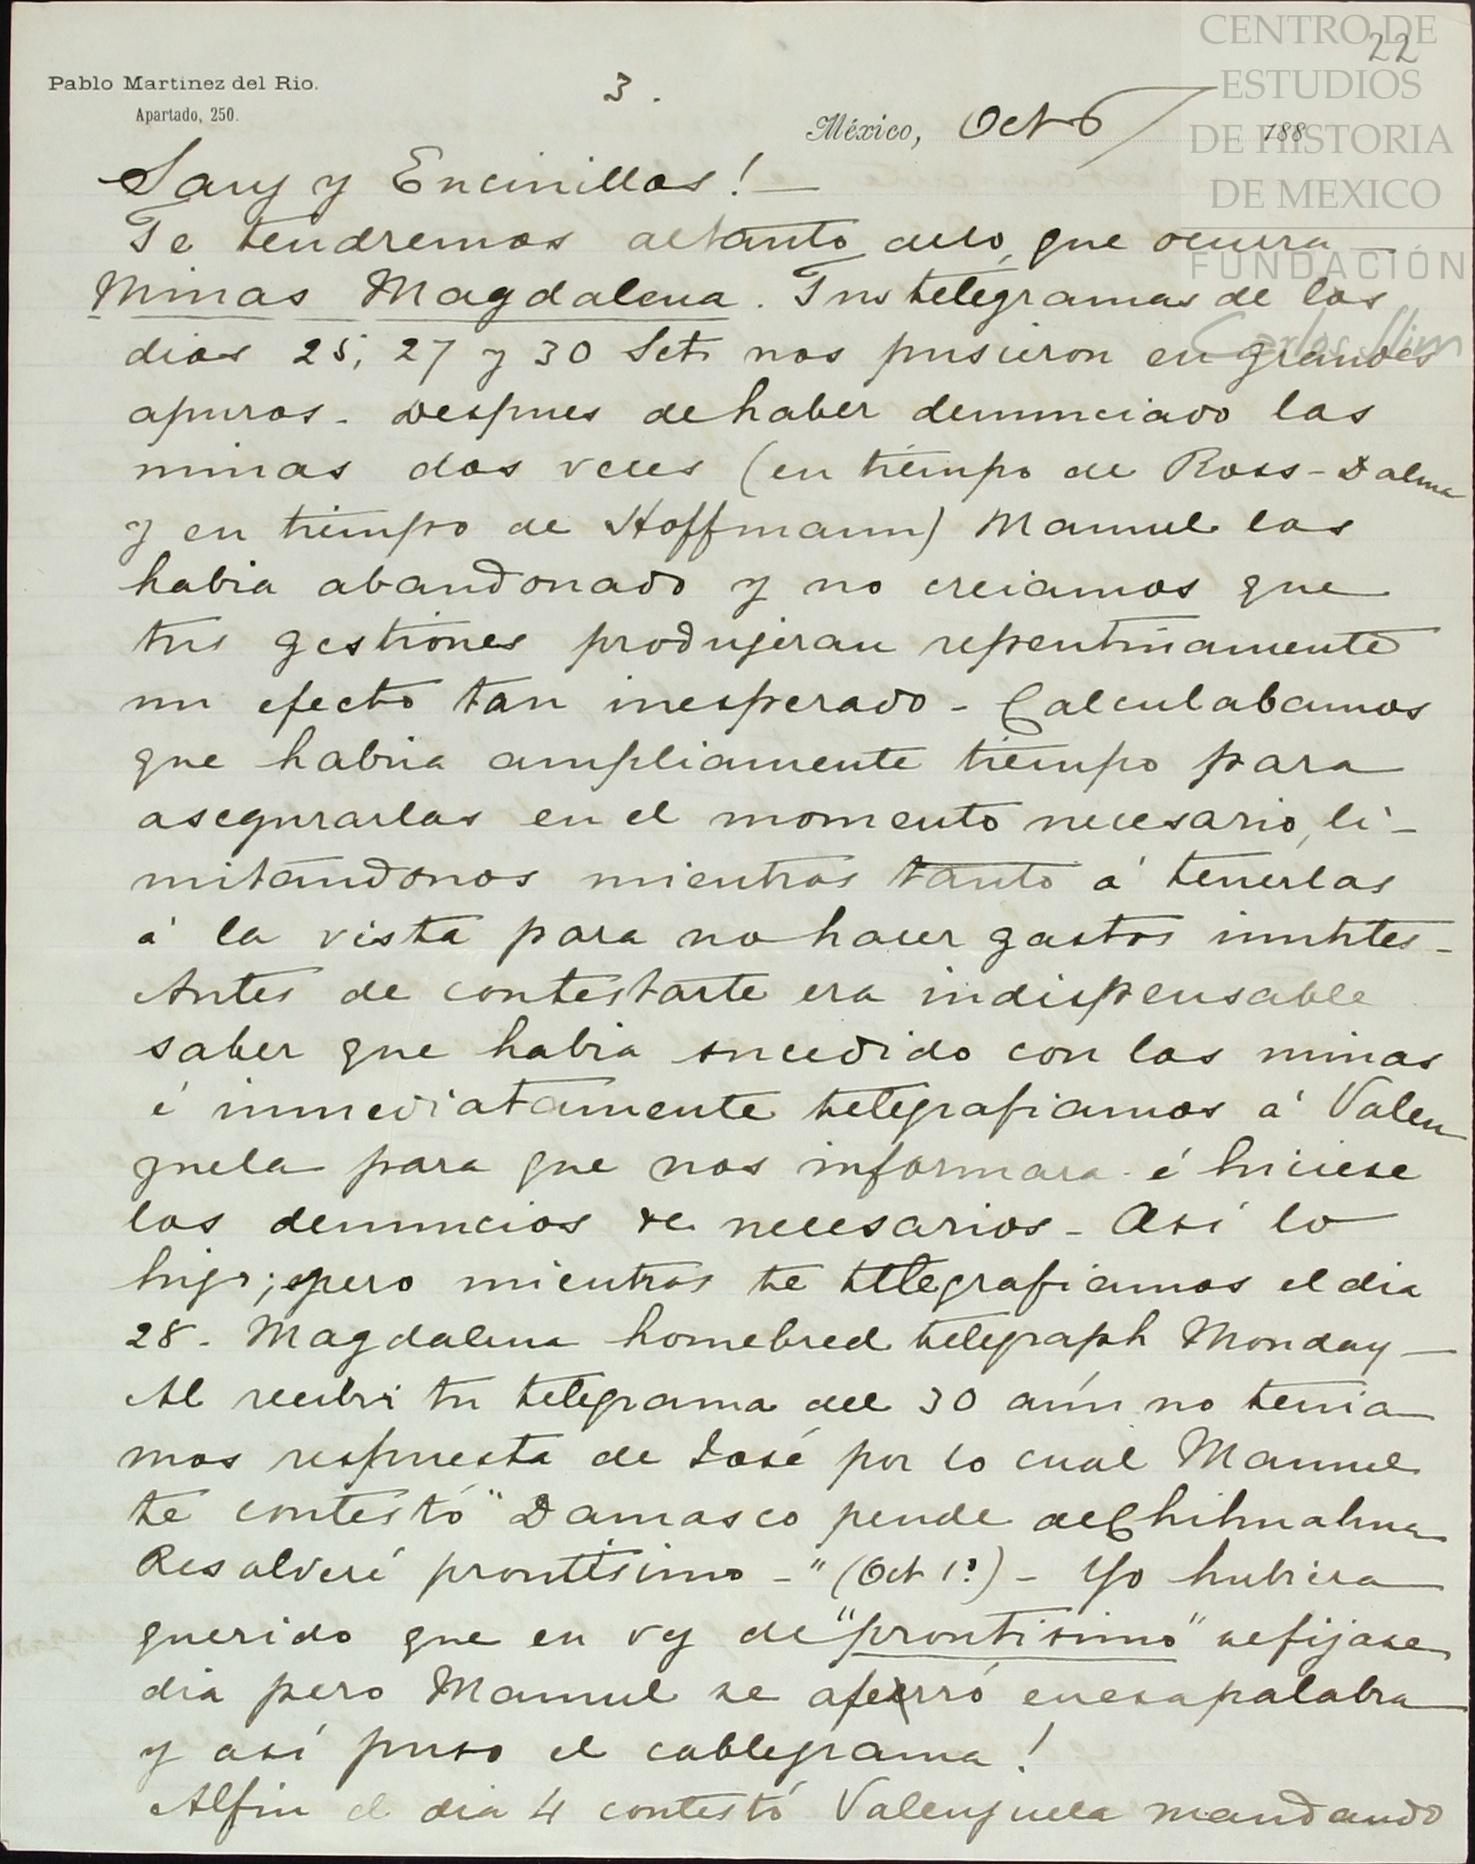 CENTRO DE
ESTUDIOS
DE HISTORIA
DE MEXICO
FUNDACIÓN
Carlos Slim
22
Pablo Martinez del Rio.
Apartado, 250.
3.
México, Oct 6 188
y Encinillas! —
Te tendremos al tanto de lo que ocurra —
Minas Magdalena. Tus telégramas de los
dias 25, 27 y 30 Set. nos pusieron en grandes
apuros - Despues de haber denunciado las
minas dos veces (en tiempo de Ross - Dalma
y en tiempo de Hoffmann) Manuel las
habia abandonado y no creiamos que
tus gestiones produjeran repentinamente
un efecto tan inesperado - Calculabamos
que habria ampliamente tiempo para
asegurarlas en el momento necesario, li-
mitandonos mientras tanto á tenerlas
á la vista para no hacer gastos inutiles -
Antes de contestarte era indispensable
saber que habia sucedido con las minas
é inmediatamente telegrafiamos á Valen
zuela para que nos informara é hiciese
los denuncios necesarios - Así lo
hizo; pero mientras te telegrafiamos el dia
28 - Magdalena homebred telegraph Monday —
Al recibir tu telegrama del 30 aún no tenia
mos respuesta de José por lo cual Manuel
te contestó "Damasco pende de Chihuahua
Resolveré prontísimo - " (Oct 1º) - Yo hubiera
querido que en vez de "prontisimo" se fijase
dia pero Manuel se aferró en esa palabra
y así puso el cablegrama!
Al fin el dia 4 contestó Valenzuela mandando